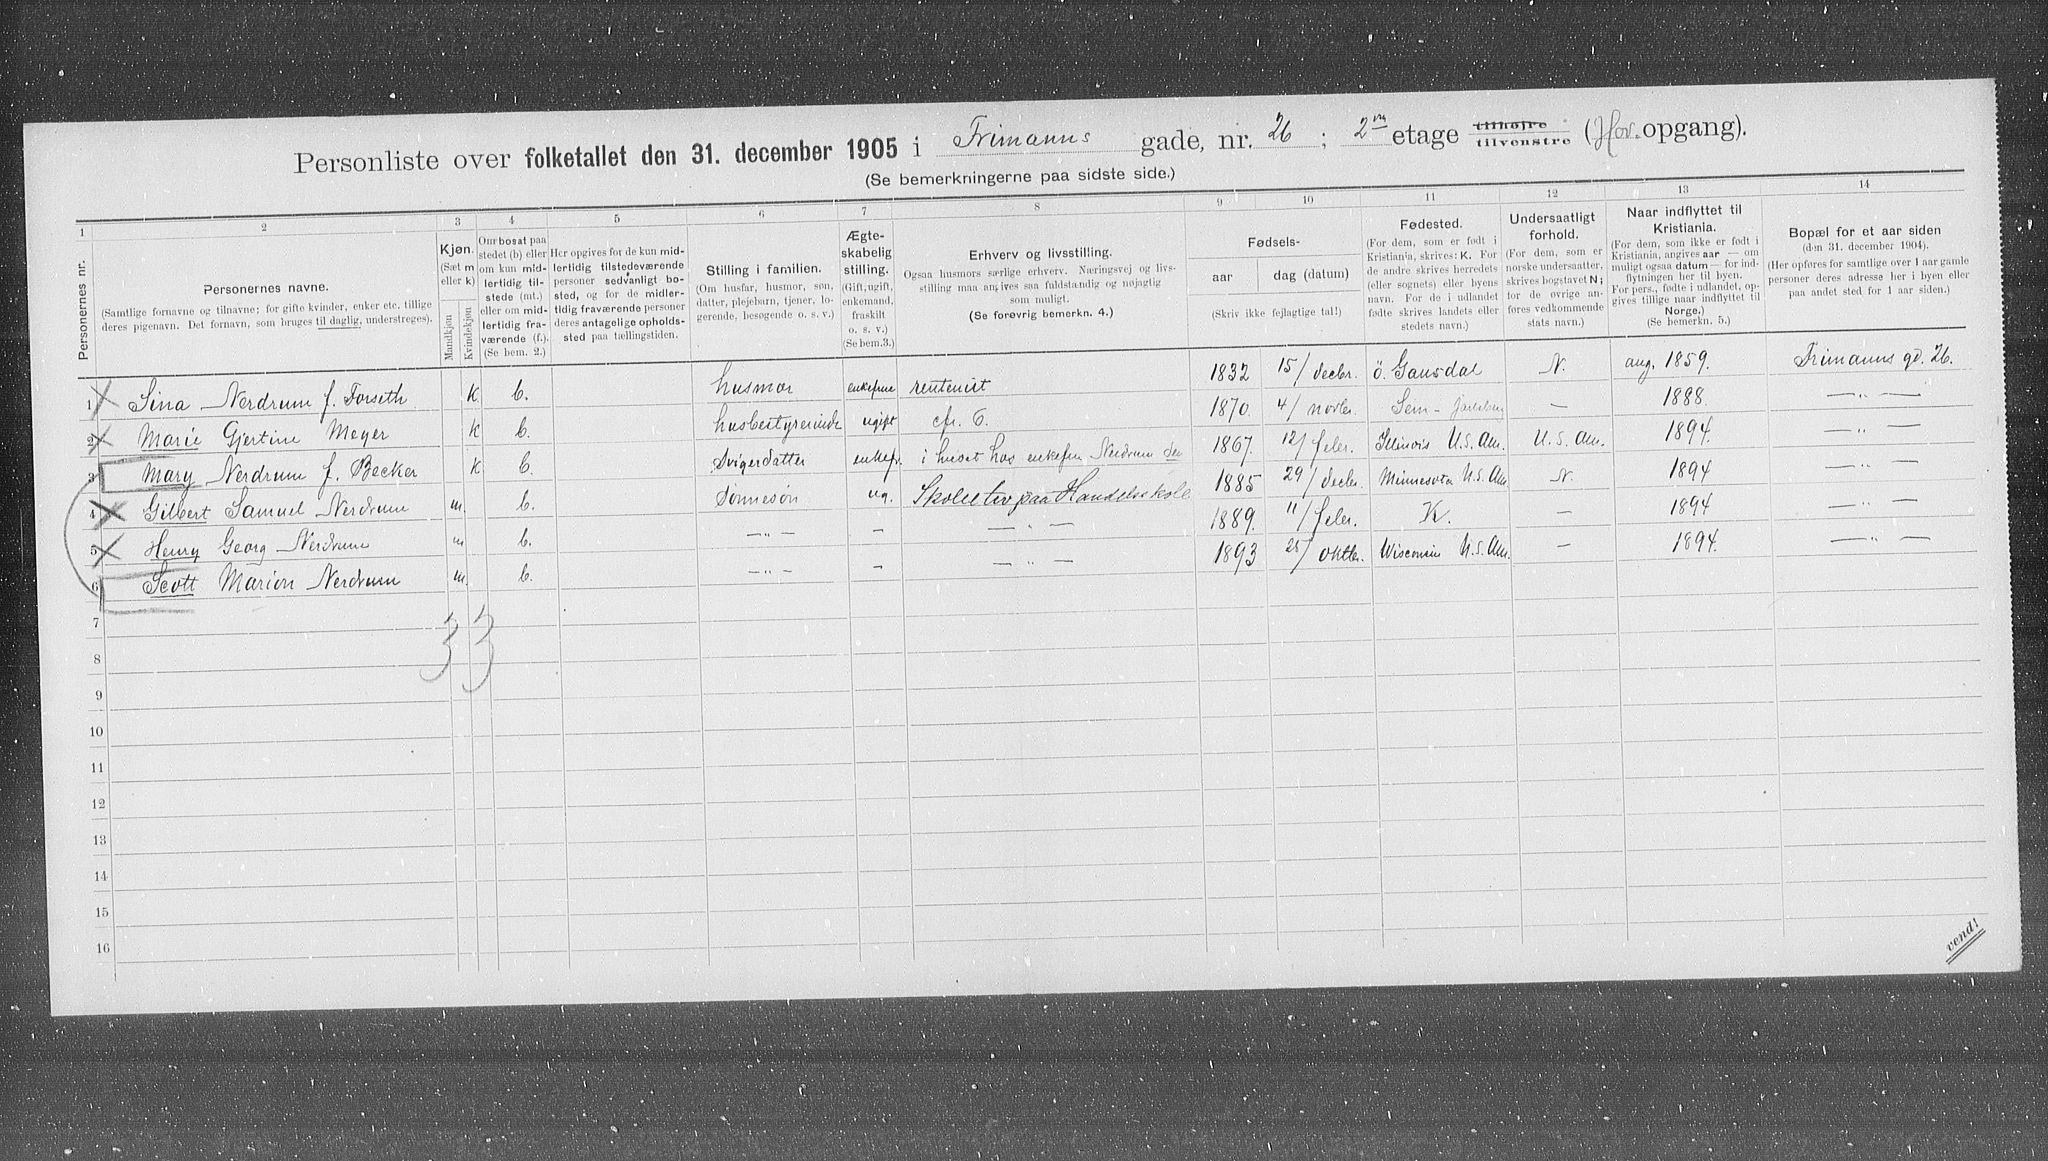 Personliste over folketallet den 31. december 1905 i Frimanns gade, nr. 26 ; 2den etage tilhøjre tilvenstre (Hov. opgang).
(Se bemerkningerne paa sidste side.)
1 2 3 4 5 6 7 8 9 10 11 12 13 14
Personernes nr.
Personernes navne.
(Samtlige fornavne og tilnavne; for gifte kvinder, enker etc. tillige
deres pigenavn. Det fornavn, som bruges til daglig, understreges).
Kjøn.
(Sæt m
eller k)
Mandkjøn
Kvindekjøn
Om bosat paa
stedet (b) eller
om kun mid-
lertidig til-
stede (mt.)
eller om mid-
lertidig fra-
værende (f.).
(Se bem. 2.)
Her opgives for de kun mid-
lertidig tilstedeværende
personer sedvanligt bo-
sted, og for de midler-
tidig fraværende personer
deres antagelige opholds-
sted paa tællingstiden.
Stilling i familien.
(Om husfar, husmor, søn,
datter, plejebarn, tjener, lo-
gerende, besøgende o. s. v.)
Ægte-
skabelig
stilling.
(Gift, ugift,
enkemand,
fraskilt
o. s. v.)
(Se bem.3.)
Erhverv og livsstilling.
Ogsaa husmors særlige erhverv. Næringsvej og livs-
stilling maa angives saa fuldstændig og nøjagtig
som muligt.
(Se forøvrig bemerkn. 4.)
Fødsels-
aar
dag (datum)
(Skriv ikke fejlagtige tal!)
Fødested.
(For dem, som er født i
Kristiania, skrives: K. For
de andre skrives herredets
(eller sognets) eller byens
navn. For de i udlandet
fødte skrives landets eller
stedets navn.)
Undersaatligt
forhold.
(For dem, som er
norske undersaatter,
skrives bogstavet N;
for de øvrige an-
føres vedkommende
stats navn.)
Naar indflyttet til
Kristiania.
(For dem, som ikke er født i
Kristiania, angives aar — om
muligt ogsaa datum — for ind-
flytningen her til byen.
For pers., fødte i udlandet, op-
gives tillige naar indflyttet til
Norge.)
(Se bemerkn. 5.)
Bopæl for et aar siden
(den 31. december 1904).
(Her opføres for samtlige over 1 aar gamle
personer deres adresse her i byen eller
paa andet sted for 1 aar siden.)
1 Sina Nerdrum f. Forseth k b. husmor enkefrue rentenist 1832 15/ decbr. ö. Gausdal N. aug. 1859. Frimanns gd. 26.
2 Marie Gjertine Meyer k b. husbestyrerinde ugift cfr. 6. 1870. 4/ novbr. Sem - Jarlsberg — 1888. — „ —
3 Mary Nerdrum f. Becker k b. Svigerdatter enkefr. i huset hos enkefru Nerdrum 1867. 12/ febr. Illinois U.S. Am. U.S. Am. 1894. — „ —
4 Gilbert Samuel Nerdrum m. b. Sønnesøn ug. Skoleelev paa Handelsskole 1885 29/ decbr. Minnesota U.S. Am N. 1894 — „ —
5 Henry Georg Nerdrum m b. — „ — — — „ — 1889. 11/ febr. K. — 1894 — „ —
6 Scott Marion Nerdrum m. b. — „ — — — „ — 1893 25/ oktbr. Wisconsin U.S. Am. — 1894. — „ —
7
3 3
8
9
10
11
12
13
14
15
16
vend!